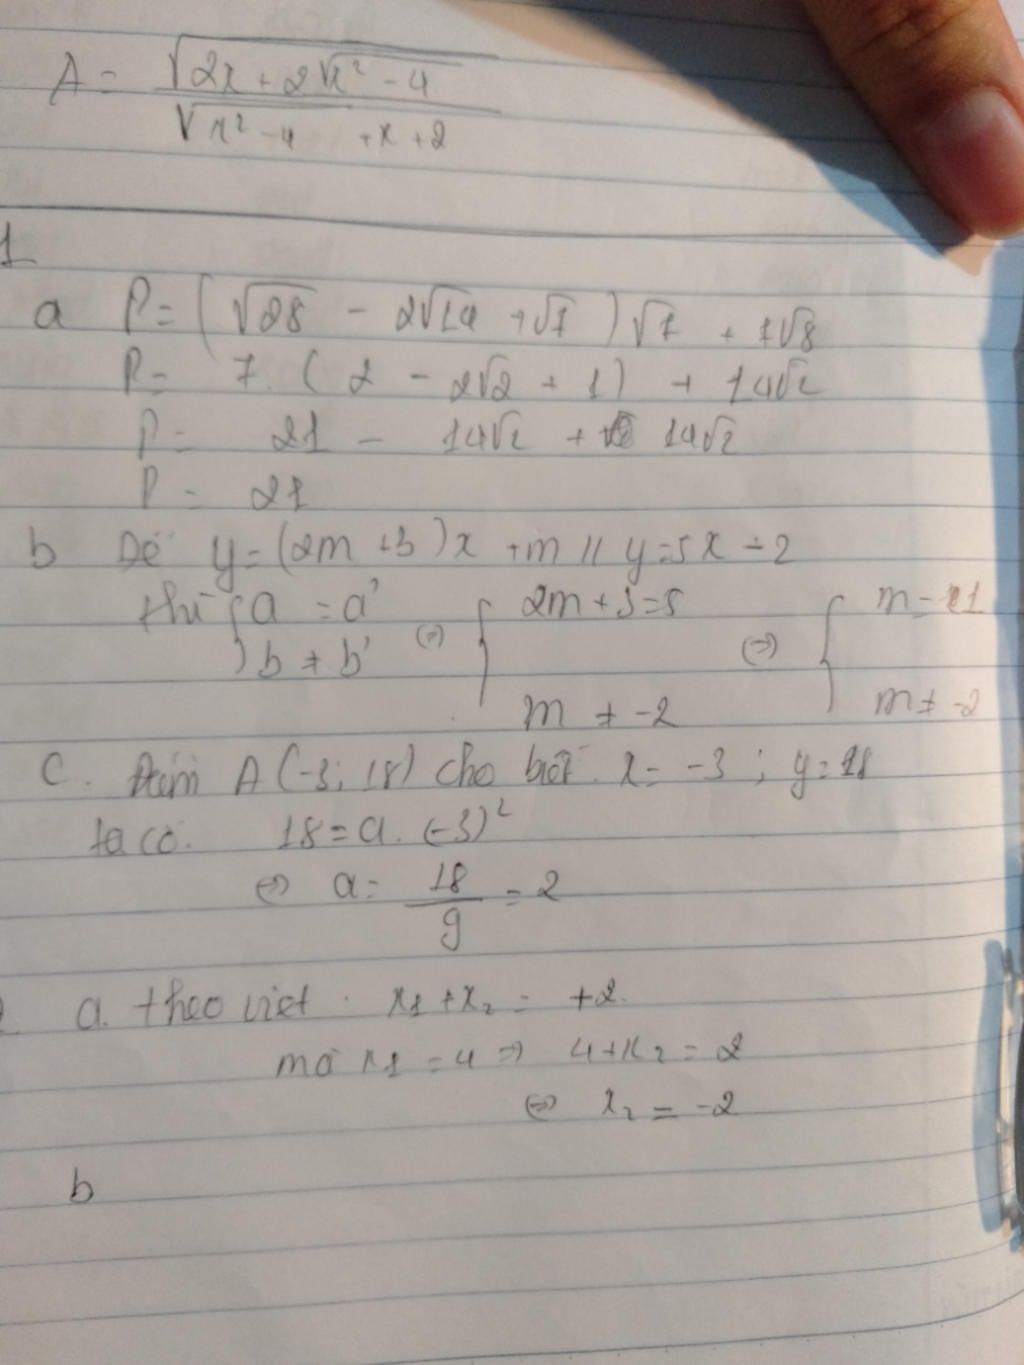 A = √(2x + 2√(x² - 4)) / (√(x² - 4) + x + 2)
1
a P = (√28 - 2√14 + √7)√7 + 7√8
P = 7. (2 - 2√2 + 1) + 14√2
P = 21 - 14√2 + 14√2
P = 21
b Để y = (2m + 3)x + m // y = 5x - 2
thì { a = a' (⇒) { 2m + 3 = 5 (⇒) { m = 1
b ≠ b' m ≠ -2 m ≠ -2
C. Điểm A (-3; 18) cho biết x = -3 ; y = 18
ta có. 18 = a. (-3)²
(⇒) a = 18/9 = 2
a. theo viet. x1 + x2 = +2.
mà x1 = 4 ⇒ 4 + x2 = 2
(⇒) x2 = -2
b